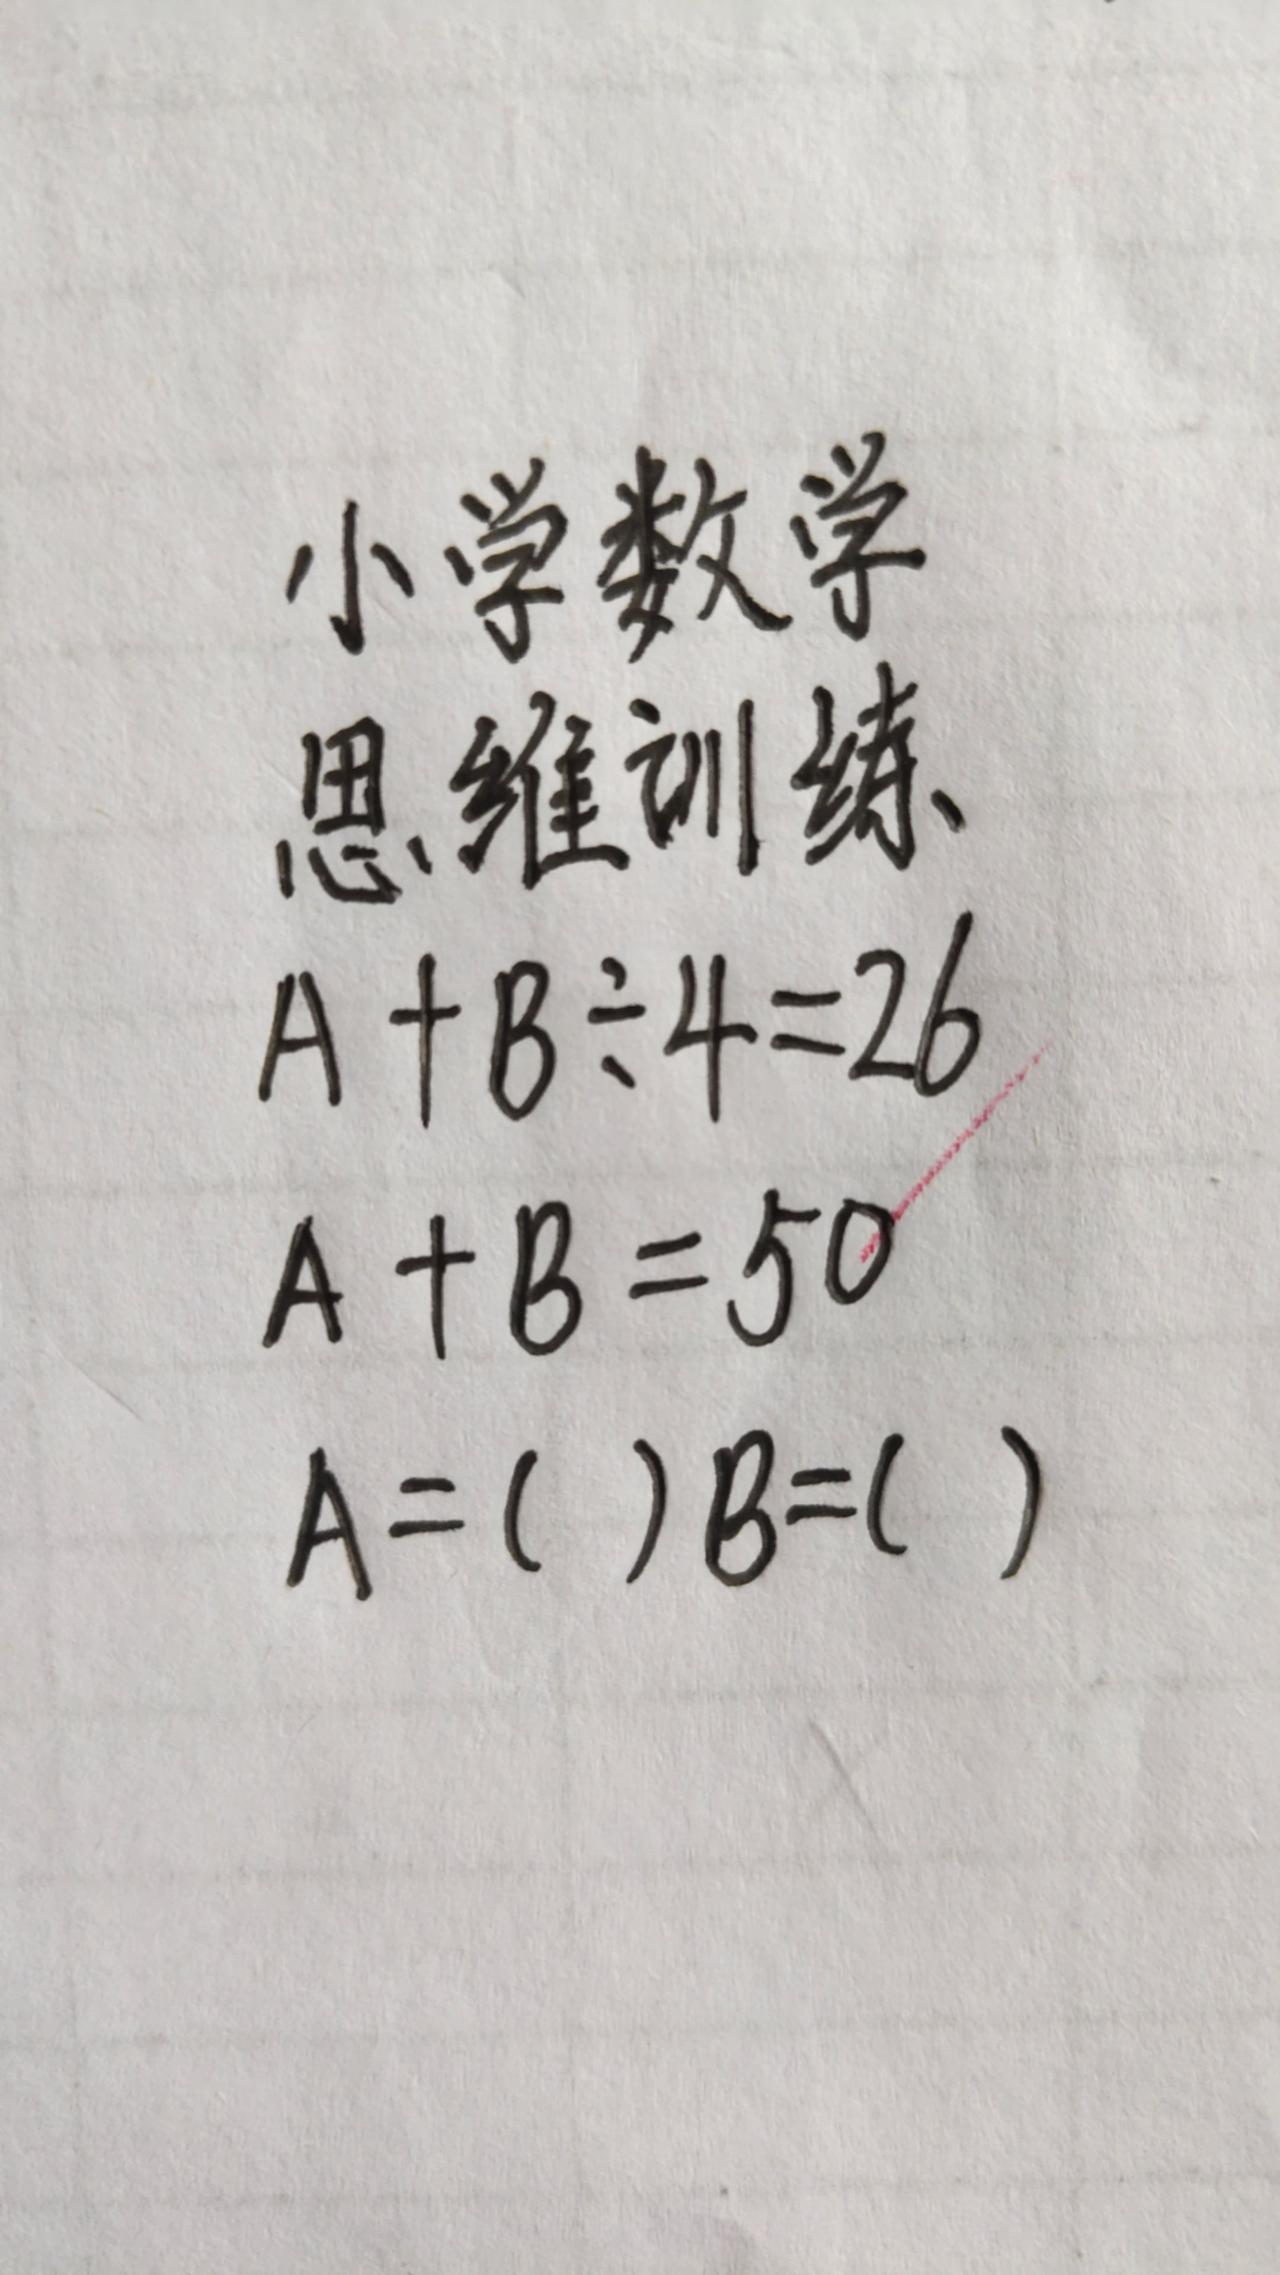 小学数学
思维训练
A+B÷4=26
A+B=50
A=( )B=( )